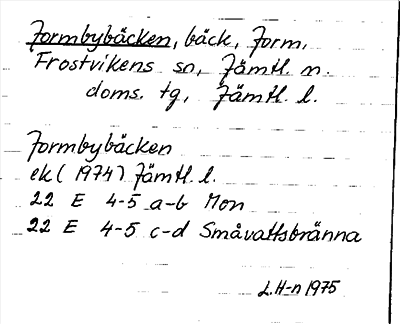 Formbybäcken, bäck, Form,
Frostvikens sn, Jämtl. n.
doms. tg, Jämtl. l.
Formbybäcken
ek (1974) Jämtl. l.
22 E 4-5 a-b Mon
22 E 4-5 c-d Småvattsbränna
L.H-n 1975